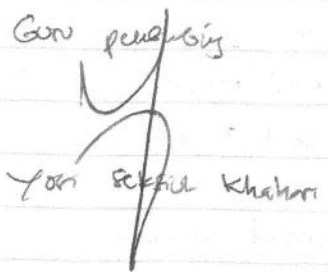 Guru pembimbing
Yosi Khahari